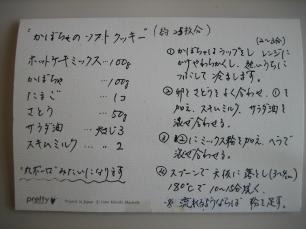 "かぼちゃのソフトクッキー" (約25枚分)
ホットケーキミックス…100g
かぼちゃ … 100g
たまご … 1コ
さとう … 50g
サラダ油 … 大さじ3
スキムミルク … 〃 2
"丸ボーロ"みたいになります
(2〜3分)
①かぼちゃはラップをし レンジに
かけやわらかくし、熱いうちに
つぶして 冷まします。
②卵とさとうをよく合わせ、①を
加え、スキムミルク、サラダ油を
混ぜ合わせる。
③②にミックス粉を加え、ヘラで
混ぜ合わせる。
④スプーンで天板に落とし(3〜4cm)
180℃で 10〜15分焼く。
※ 流れるようならば 粉を足す。
pretty
Printed in Japan